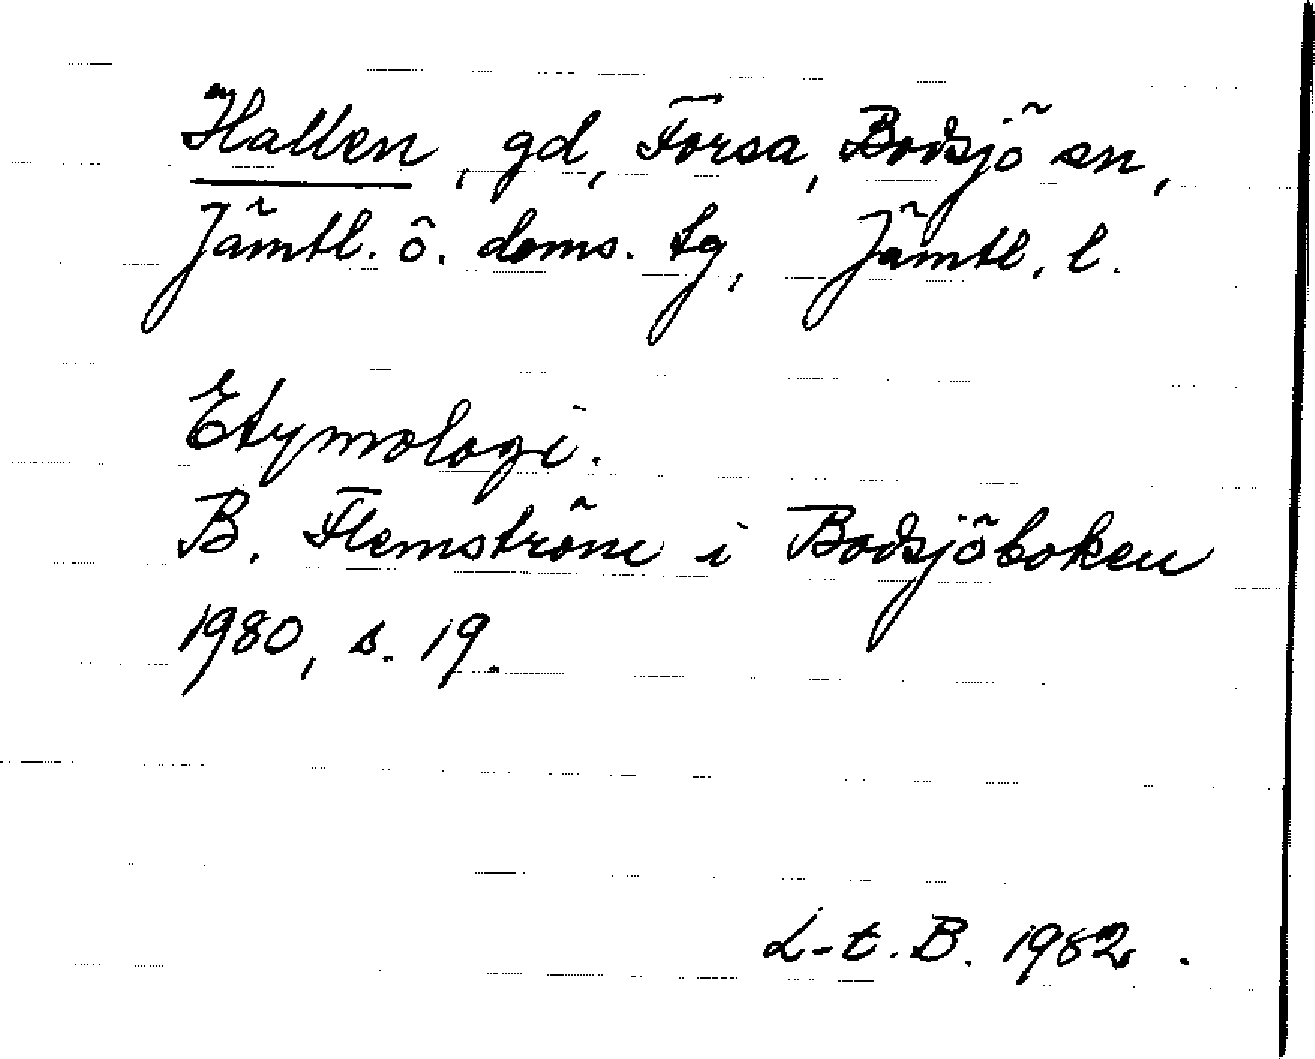 Hallen, gd, Forsa, Bodsjö sn,
Jämtl. ö. doms. tg, Jämtl. l.
Etymologi.
B. Flemström i Bodsjöboken
1980, s. 19.
L-t. B. 1982.